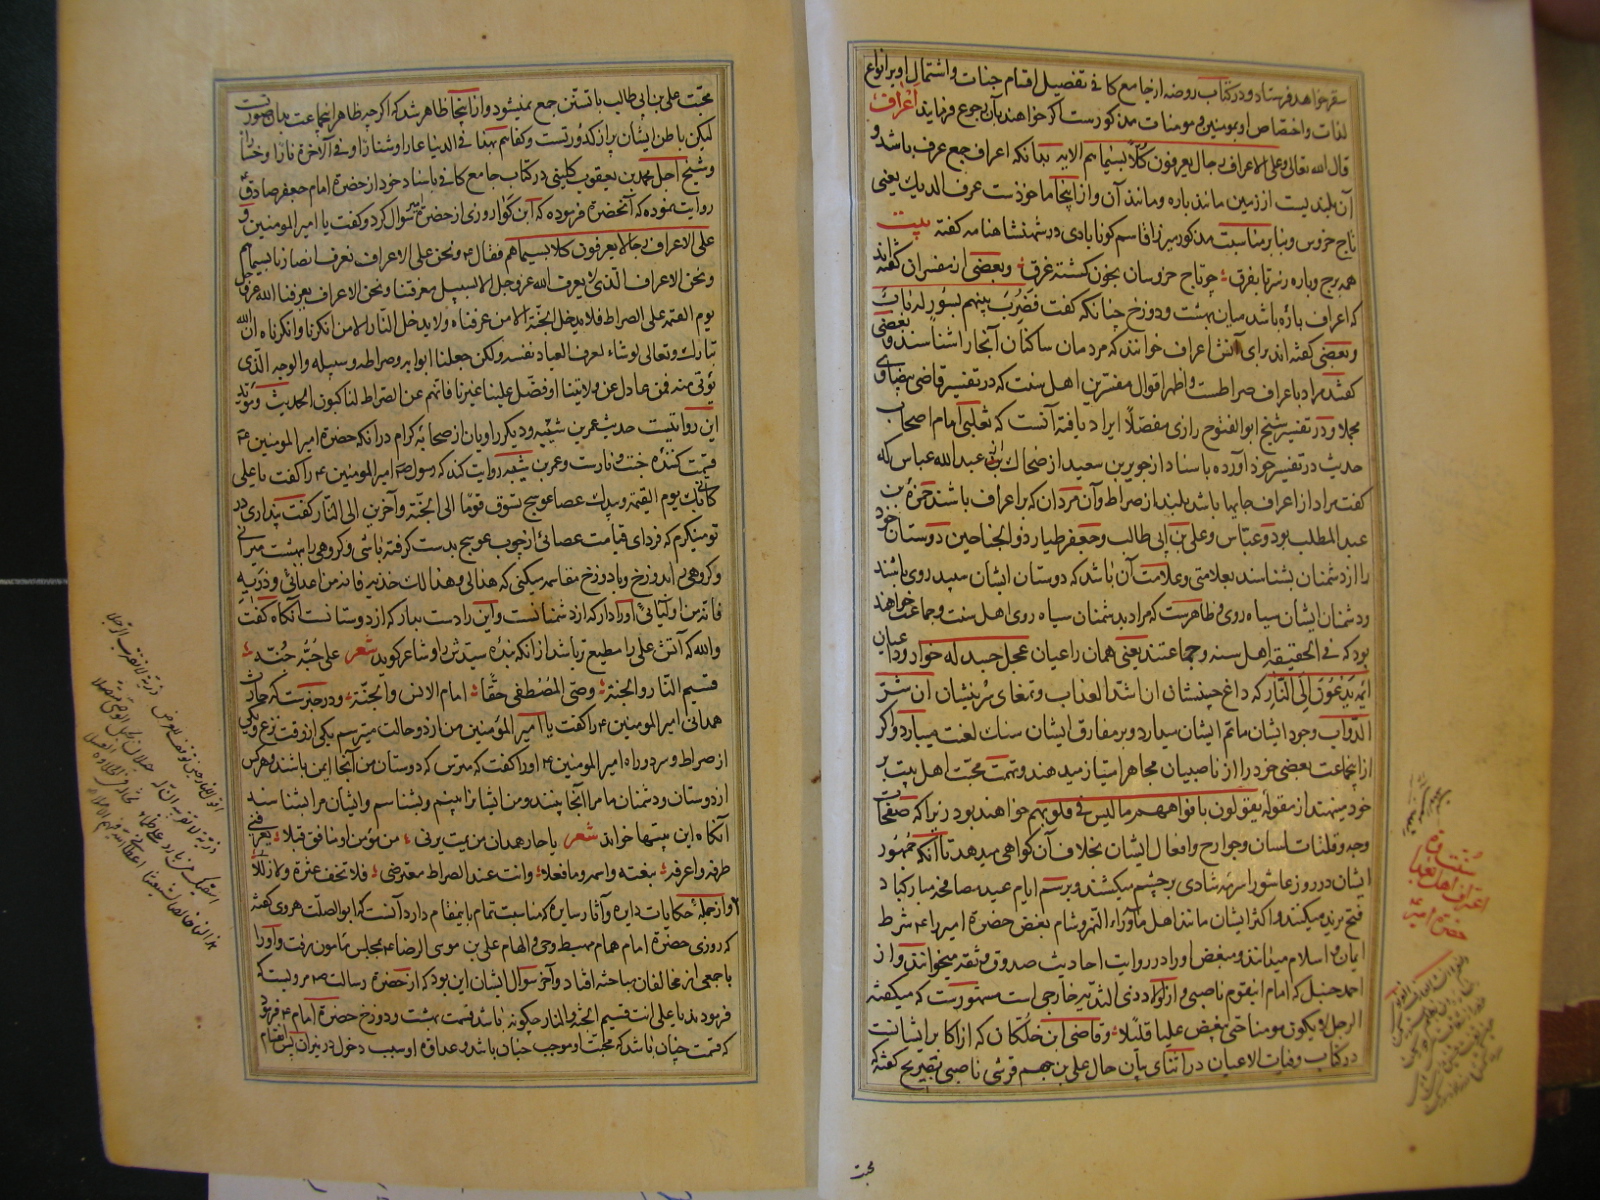 سقر خواهد فرستاد و در کتاب روضه از جامع کافی تفصیل اقسام جنات و اشتمال او بر انواع
لذات و اختصاص او بمومنین و مومنات مذکورست اگر خواهند بآن رجوع فرمایند اعراف
قال الله تعالی و علی الاعراف رجال یعرفون کلا بسیماهم الایه بدانکه اعراف جمع عرف باشد و
آن بلندیست از زمین مانند باره و مانند آن و از اینجا ماخوذست عرف الدیک یعنی
تاج خروس و بنا بر مناسبت مذکور میرزا قاسم کونابادی در شهنشاهنامه گفته بیت
همه برج و باره ز سر تا بفرق چو تاج خروسان بخون گشته غرق و بعضی از مفسران گفته‌اند
که اعراف باره باشد میان بهشت و دوزخ چنانکه گفت فضرب بینهم بسور له باب
و بعضی گفته‌اند برای آنش اعراف خوانند که مردمان ساکنان آنجا را شناسند و بعضی
گفتند مراد باعراف صراطست و اظهر اقوال مفسرین اهل سنت که در تفسیر قاضی بیضاوی
مجملا و در تفسیر شیخ ابو الفتوح رازی مفصلا ایراد یافته آنست که ثعلبی امام اصحاب
حدیث در تفسیر خود آورده باسناد از جویبر بن سعید از ضحاک از عبد الله عباس که
گفت مراد از اعراف جایها باشد بلند از صراط و آن مردان که بر اعراف باشند حمزه بن
عبد المطلب بود و عباس و علی بن ابی طالب و جعفر طیار ذو الجناحین دوستان خود
را از دشمنان بشناسند بعلامتی و علامت آن باشد که دوستان ایشان سپید روی باشند
و دشمنان ایشان سیاه روی و ظاهرست که مراد بدشمنان سیاه روی اهل سنت و جماعت خواهند
بود که فی الحقیقه اهل سنه و جماعتند یعنی همان راعیان عجل جسد له خوار و داعیان
ائمه یدعون الی النار که داغ جبینشان ان اشد العذاب و تمغای سرینشان ان شر
الدواب وجود ایشان ماتم ایشان میدارد و بر مفارق ایشان سنک لعنت میبارد و اگر
ازینجماعت بعضی خود را از ناصبیان مجاهر امتیاز میدهند و تهمت محبت اهل بیت بر
خود مینهند از مقوله یقولون بافواههم ما لیس فی قلوبهم خواهند بود زیرا که صفحات
وجه و فلتات لسان و جوارح و افعال ایشان بخلاف آن کواهی میدهد تا آنکه جمهور
ایشان در روز عاشورا سرمه شادی بر چشم میکشند و برسم ایام عید مصافحه مبارکباد
فتح یزید میکنند و اکثر ایشان مانند اهل ماوراء النهر و شام بغض حضرة امیر را ع شرط
ایمان و اسلام میدانند و مبغض او را در روایت احادیث صدوق و ثقه میخوانند و از
احمد حنبل که امام اینقوم ناصبی و از اولاد ذی الثدیه خارجی است مشهورست که میگفته
الرجل لا یکون مومنا حتی یبغض علیا قلیلا و قاضی ابن خلکان که از اکابر ایشانست
در کتاب وفیات الاعیان در اثنای بیان حال علی بن جهم قرشی ناصبی تصریح گفته که
محبت
محبت علی بن ابی طالب با تسنن جمع نمیشود و از اینجا ظاهر شد که اگر چه ظاهر اینجماعت
لیکن باطن ایشان پر از کدورتست و کفاهم بهذا فی الدنیا عارا و شنارا و فی الآخرة نارا و خسارا
و شیخ اجل محمد بن یعقوب کلینی در کتاب جامع کافی باسناد خود از حضرة امام جعفر صادق ع
روایت نموده که آنحضرة فرموده که ابن کوا روزی از حضرة امیر سوال کرد و گفت یا امیر المومنین و
علی الاعراف رجالا یعرفون کلا بسیماهم فقال ع و نحن علی الاعراف نعرف انصارنا بسیماهم
و نحن الاعراف الذی لا یعرف الله عز و جل الا بسبیل معرفتنا و نحن الاعراف یعرفنا الله عز و جل
یوم القیمه علی الصراط فلا یدخل الجنة الا من عرفناه و لا یدخل النار الا من انکرنا و انکرناه ان الله
تبارک و تعالی لو شاء لعرف العباد نفسه و لکن جعلنا ابوابه و صراطه و سبیله و الوجه الذی
یوتی منه فمن عادل عن ولایتنا او فضل علینا غیرنا فانهم عن الصراط لناکبون الحدیث و مؤید
این روایتست حدیث عمر بن شیبه و دیگر راویان از صحابه کرام در آنکه حضرة امیر المومنین ع
قسمت کننده جنت و نارست و عمر بن شیبه روایت کند که رسول ص امیر المومنین ع را گفت یا علی
کانی بک یوم القیمة و بیدک عصا عوسج تسوق قوما الی الجنة و آخرین الی النار گفت پنداری در
تو مینگرم که فردای قیامت عصائی از چوب عوسج بدست گرفته باشی و گروهی را ببهشت میرانی
و گروهی را بدوزخ و با دوزخ مقاسمه میکنی که هذا لی و هذا لک خذیه فانه من اعدائی و ذریه
فانه من اولیائی او را دار که از دشمنانست و این را دست بدار که از دوستانست آنگاه گفت
و الله که آتش علی را مطیع تر باشد از آنکه بنده سیدش را و شاعر گوید شعر علی حبه جنه
قسیم النار و الجنة وصی المصطفی حقا امام الانس و الجنة و در خبرست که حارث
همدانی امیر المومنین ع را گفت یا امیر المؤمنین من از دو حالت میترسم یکی از وقت نزع و یکی
از صراط و بر دو راه امیر المومنین ع او را گفت که مترس که دوستان من آنجا ایمن باشند و هر کس
از دوستان و دشمنان ما مرا آنجا بینند و من ایشانرا بینم و بشناسم و ایشان مرا بشناسند
آنگاه این بیتها خواند شعر یا حار همدان من یمت یرنی من مؤمن او منافق قبلا یعرفنی
طرفه و اعرفه بنعته و اسمه و ما فعلا و انت عند الصراط معترضی فلا تخف عثرة و لا زللا
و از جمله حکایات دایره و آثار سایره که مناسبت تمام باینمقام دارد آنست که ابو الصلت هروی گفته
که روزی حضرة امام همام مهبط وحی و الهام علی بن موسی الرضا ع بمجلس مامون رفت و او را
با جمعی از مخالفان مباحثه افتاد و آخر سوال ایشان این بود که از حضرة رسالت ص مرویست که
فرمودند یا علی انت قسیم الجنة و النار چگونه باشد قسمت بهشت و دوزخ حضرة امام ع فرمود
که قسمت چنان باشد که محبت او موجب جنان باشد و عداوة او سبب دخول در نیران پس اقسام